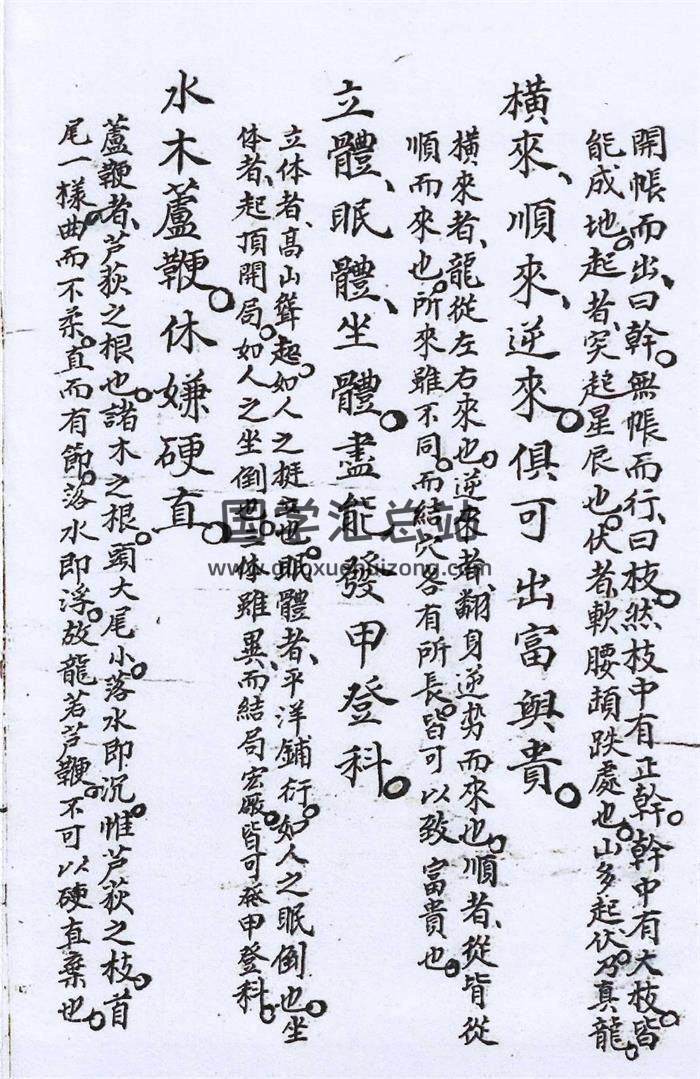 開帳而出、曰幹。無帳而行、曰枝。然枝中有正幹。幹中有大枝。皆
能成地。起者、突起星辰也。伏者、軟腰頓跌處也。山多起伏。乃真龍。
橫來、順來、逆來。俱可出富與貴。
橫來者、龍從左右來也。逆來者、翻身逆势而來也。順者、從背從
順而來也。所來雖不同。而結穴各有所長。皆可以致富貴也。
立體、眠體、坐體。盡能發甲登科。
立体者、高山聳起。如人之挺立也。眠體者、平洋鋪衍。如人之眠倒也。坐
体者、起頂開局。如人之坐倒也。体雖異、而結局宏厰。皆可發甲登科。
水木蘆鞭。休嫌硬直。
蘆鞭者、芦荻之根也。諸木之根。頭大尾小。落水即沉。惟芦荻之枝。首
尾一樣。曲而不柔。直而有節。落水即浮。故龍若芦鞭。不可以硬直棄也。
国学汇总站
www.guoxuehuizong.com